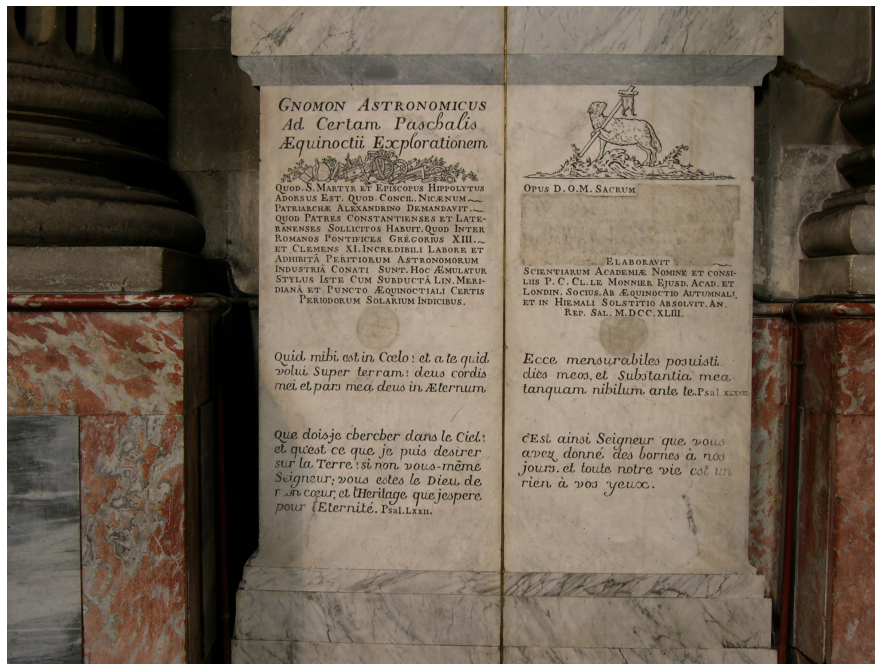 GNOMON ASTRONOMICUS
Ad Certam Paschalis
Æquinoctii Explorationem
QUOD. S. MARTYR ET EPISCOPUS HIPPOLYTUS
ADORSUS EST. QUOD CONCIL. NICÆNUM
PATRIARCHÆ ALEXANDRINO DEMANDAVIT.
QUOD PATRES CONSTANTIENSES ET LATE-
RANENSES SOLLICITOS HABUIT. QUOD INTER
ROMANOS PONTIFICES GREGORIUS XIII.
ET CLEMENS XI. INCREDIBILI LABORE ET
ADHIBITÂ PERITIORUM ASTRONOMORUM
INDUSTRIÂ CONATI SUNT. HOC ÆMULATUR
STYLUS ISTE CUM SUBDUCTÂ LIN. MERI-
DIANÂ ET PUNCTO ÆQUINOCTIALI CERTIS
PERIODORUM SOLARIUM INDICIBUS.
Quid mihi est in Cœlo: et a te quid
volui Super terram: deus cordis
mei et pars mea deus in Æternum
Que dois-je chercher dans le Ciel:
et qu'est ce que je puis desirer
sur la Terre: si non vous-même
Seigneur; vous estes le Dieu de
mon cœur, et l'Heritage que jespere
pour l'Eternité. Psal. LXXII.
OPUS D.O.M. SACRUM
ELABORAVIT
SCIENTIARUM ACADEMIÆ NOMINE ET CONSI-
LIIS P. C. CL. LE MONNIER EJUSD. ACAD. ET
LONDIN. SOCIUS. AB ÆQUINOCTIO AUTUMNALI
ET IN HIEMALI SOLSTITIO ABSOLVIT. AN.
REP. SAL. M.DCC.XLIII.
Ecce mensurabiles posuisti
dies meos. et Substantia mea
tanquam nihilum ante te. Psal.
c'Est ainsi Seigneur que vous
avez donné des bornes à nos
jours. et toute notre vie est un
rien à vos yeux.